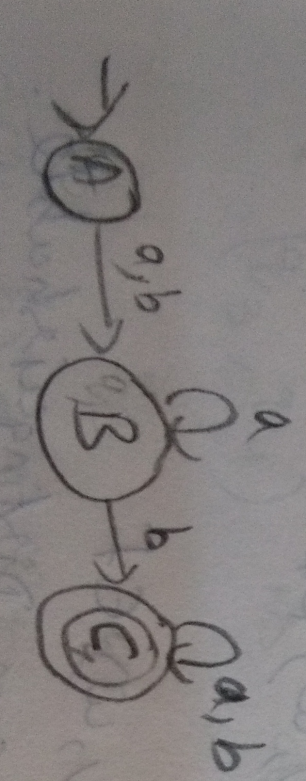 A
a,b
B
a
b
C
a,b